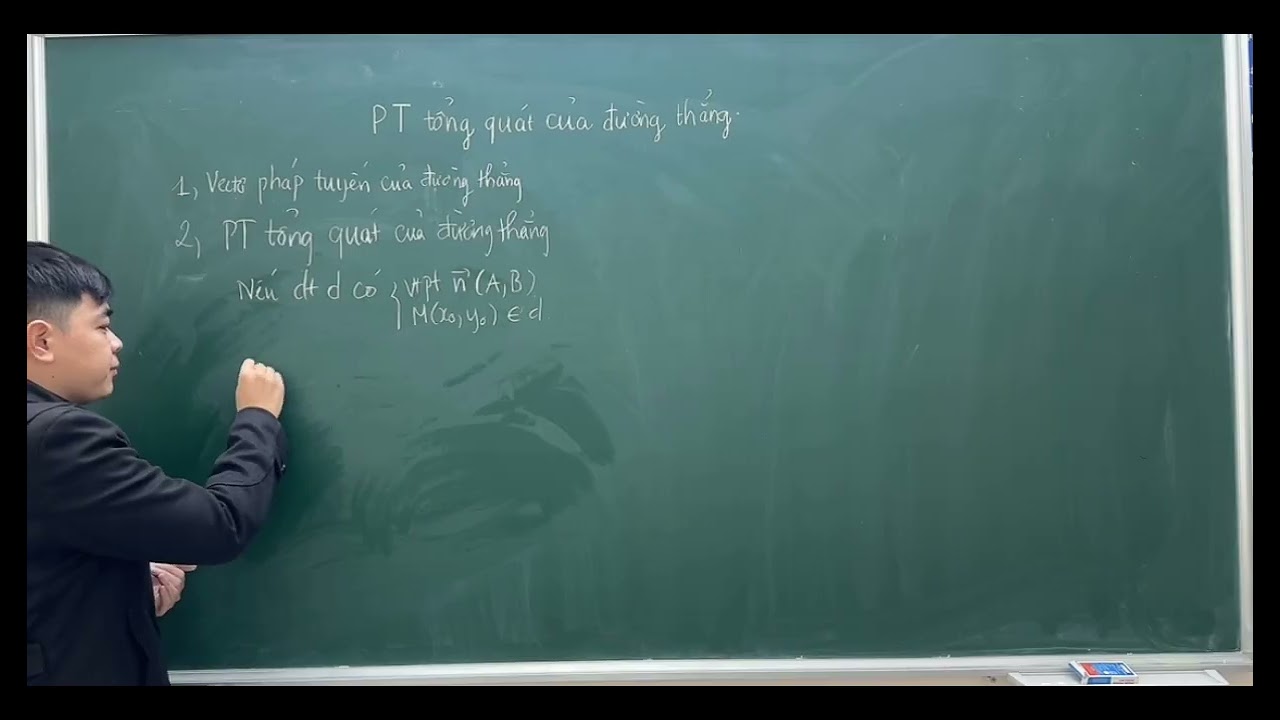 PT tổng quát của đường thẳng.
1, Vectơ pháp tuyến của đường thẳng
2, PT tổng quát của đường thẳng
Nếu đt d có { vtpt n⃗ (A, B)
M(x₀, y₀) ∈ d